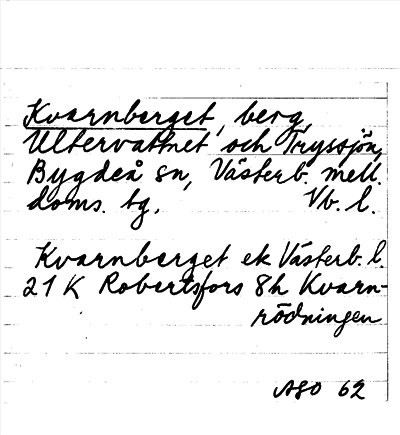 Kvarnberget, berg,
Ultervattnet och Tryssjön,
Bygdeå sn, Västerb. mell.
doms. tg. Vb. l.
Kvarnberget ek Västerb. l.
21 K Robertsfors 8h Kvarn-
rödningen
ASO 62